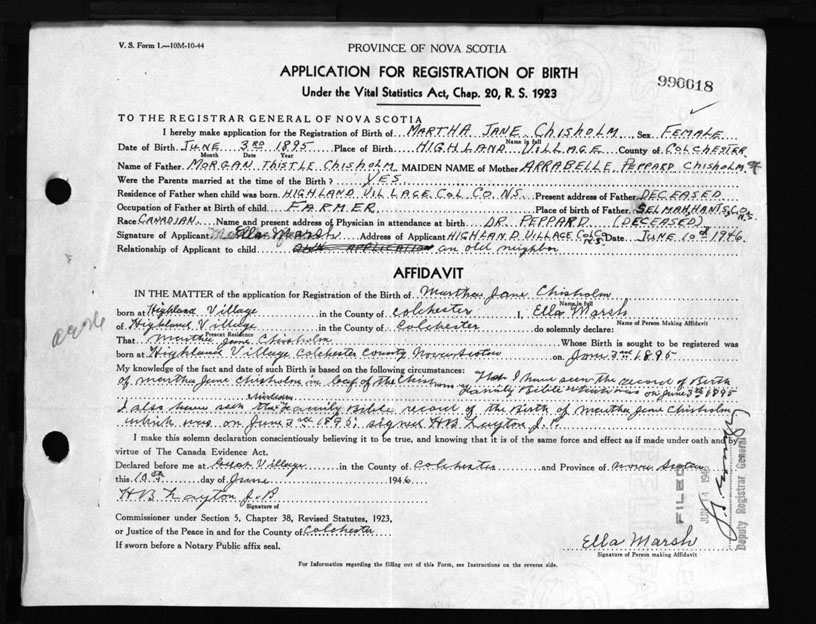 V. S. Form 1.—10M-10-44
PROVINCE OF NOVA SCOTIA
APPLICATION FOR REGISTRATION OF BIRTH
990018
Under the Vital Statistics Act, Chap. 20, R. S. 1923
TO THE REGISTRAR GENERAL OF NOVA SCOTIA
I hereby make application for the Registration of Birth of MARTHA JANE CHISHOLM Sex FEMALE
Name in full
Date of Birth JUNE 3RD 1895 Place of Birth HIGHLAND VILLAGE County of COLCHESTER
Month Date Year
Name of Father MORGAN THISTLE CHISHOLM MAIDEN NAME of Mother ARRABELLE PEPPARD CHISHOLM
Were the Parents married at the time of the Birth? YES
Residence of Father when child was born HIGHLAND VILLAGE COL CO. NS Present address of Father DECEASED
Occupation of Father at Birth of child FARMER Place of birth of Father SELMAH, HANTS, CO. N.S.
Race CANADIAN Name and present address of Physician in attendance at birth DR. PEPPARD (DECEASED)
Signature of Applicant Ella Marsh Address of Applicant HIGHLAND VILLAGE Col Co N.S. Date JUNE 10th 1946
Relationship of Applicant to child an old neighbor
AFFIDAVIT
IN THE MATTER of the application for Registration of the Birth of Martha Jane Chisholm
Name in full
born at Highland Village in the County of Colchester I, Ella Marsh
Name of Person Making Affidavit
of Highland Village in the County of Colchester do solemnly declare:
Present Residence
That Martha Jane Chisholm Whose Birth is sought to be registered was
born at Highland Village Colchester County Nova Scotia on June 3rd 1895
My knowledge of the fact and date of such Birth is based on the following circumstances: That I have seen the record of Birth
of Martha Jane Chisholm in leaf of the Chisholm Family Bible which was on June 3rd 1895
I also have seen the Family Bible record of the Birth of Martha Jane Chisholm
which was on June 3rd 1895, signed HB Layton J.P.
I make this solemn declaration conscientiously believing it to be true, and knowing that it is of the same force and effect as if made under oath and by
virtue of The Canada Evidence Act.
Declared before me at Great Village in the County of Colchester and Province of Nova Scotia
this 10th day of June 1946
HB Layton J.P
Signature of
Commissioner under Section 5, Chapter 38, Revised Statutes, 1923,
or Justice of the Peace in and for the County of Colchester
If sworn before a Notary Public affix seal.
Ella Marsh
Signature of Person making Affidavit
For Information regarding the filling out of this Form, see Instructions on the reverse side.
FILED
JUN 14 1946
Deputy Registrar General